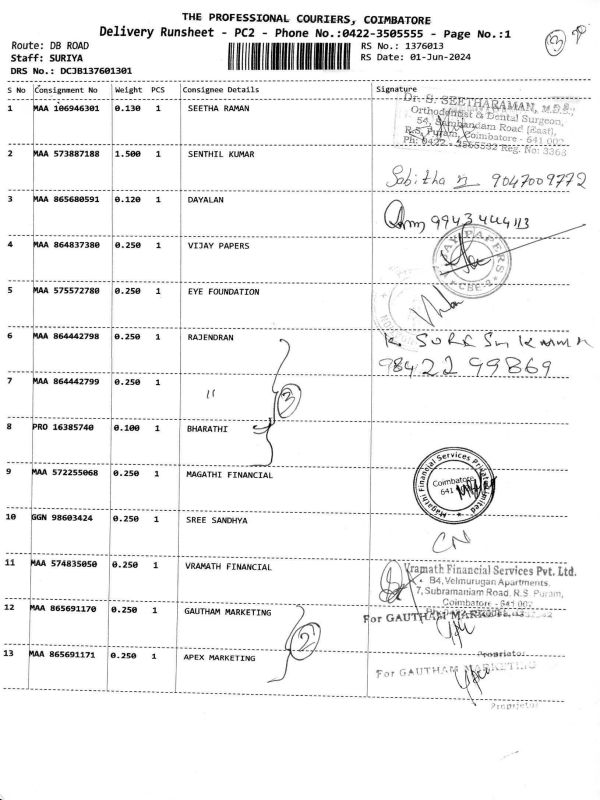 THE PROFESSIONAL COURIERS, COIMBATORE
Delivery Runsheet - PC2 - Phone No.:0422-3505555 - Page No.:1
Route: DB ROAD
RS No.: 1376013
Staff: SURIYA
RS Date: 01-Jun-2024
DRS No.: DCJB137601301
S No Consignment No Weight PCS Consignee Details Signature
1 MAA 106946301 0.130 1 SEETHA RAMAN
Dr. S. SEETHARAMAN, M.D.S.,
Orthodontist & Dental Surgeon,
54, Sambandam Road (East),
R.S. Puram, Coimbatore - 641 002
Ph: 0422 - 2565592 Reg. No: 3363
2 MAA 573887188 1.500 1 SENTHIL KUMAR
Sabitha 9047009772
3 MAA 865680591 0.120 1 DAYALAN
4 MAA 864837380 0.250 1 VIJAY PAPERS
VIJAY PAPERS
CBE-2
5 MAA 575572780 0.250 1 EYE FOUNDATION
6 MAA 864442798 0.250 1 RAJENDRAN
98422 99869
7 MAA 864442799 0.250 1 "
2
8 PRO 16385740 0.100 1 BHARATHI
9 MAA 572255068 0.250 1 MAGATHI FINANCIAL
Magathi Financial Services Private Limited
Coimbatore
641
10 GGN 98603424 0.250 1 SREE SANDHYA
CN
11 MAA 574835050 0.250 1 VRAMATH FINANCIAL
Vramath Financial Services Pvt. Ltd.
B4, Velmurugan Apartments,
7, Subramaniam Road, R.S. Puram,
Coimbatore - 641 002
12 MAA 865691170 0.250 1 GAUTHAM MARKETING
For GAUTHAM MARKETING
2
Proprietor
13 MAA 865691171 0.250 1 APEX MARKETING
For GAUTHAM MARKETING
Proprietor